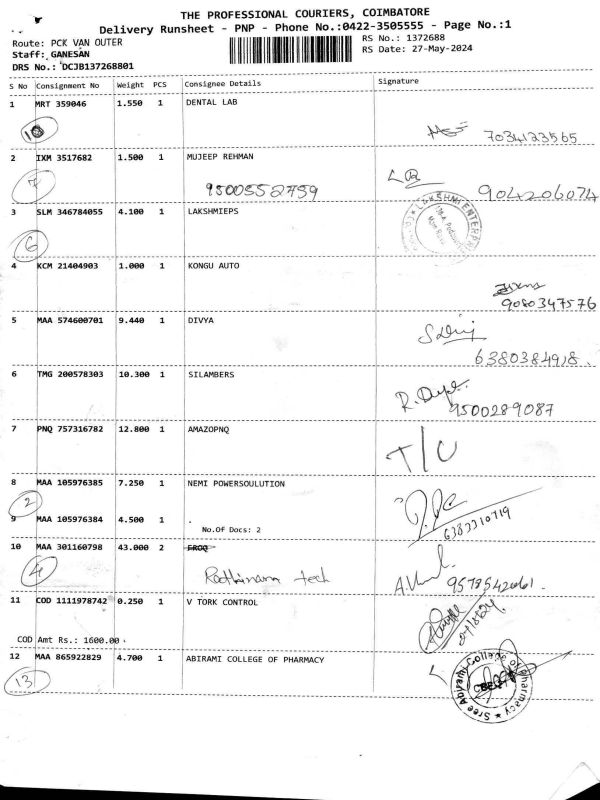 THE PROFESSIONAL COURIERS, COIMBATORE
Delivery Runsheet - PNP - Phone No.:0422-3505555 - Page No.:1
Route: PCK VAN OUTER
RS No.: 1372688
Staff: GANESAN
RS Date: 27-May-2024
DRS No.: DCJB137268801
S No Consignment No Weight PCS Consignee Details Signature
1 MRT 359046 1.550 1 DENTAL LAB
10 7034123565
2 IXM 3517682 1.500 1 MUJEEP REHMAN
7 9500552759 9042206074
3 SLM 346784055 4.100 1 LAKSHMIEPS
6
4 KCM 21404903 1.000 1 KONGU AUTO
9080347576
5 MAA 574600701 9.440 1 DIVYA
6380384918
6 TMG 200578303 10.300 1 SILAMBERS
9500289087
7 PNQ 757316782 12.800 1 AMAZOPNQ
T/C
8 MAA 105976385 7.250 1 NEMI POWERSOULUTION
2
9 MAA 105976384 4.500 1 .
No.Of Docs: 2
6383310719
10 MAA 301160798 43.000 2 FROQ
4 tech
11 COD 1111978742 0.250 1 V TORK CONTROL
COD Amt Rs.: 1600.00
12 MAA 865922829 4.700 1 ABIRAMI COLLEGE OF PHARMACY
13
Sree Abirami College of Pharmacy